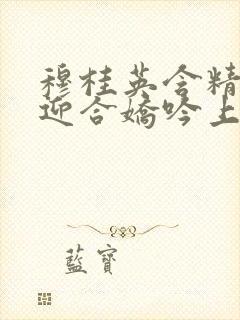 穆桂英含精
迎合嬌吟上
藍寶